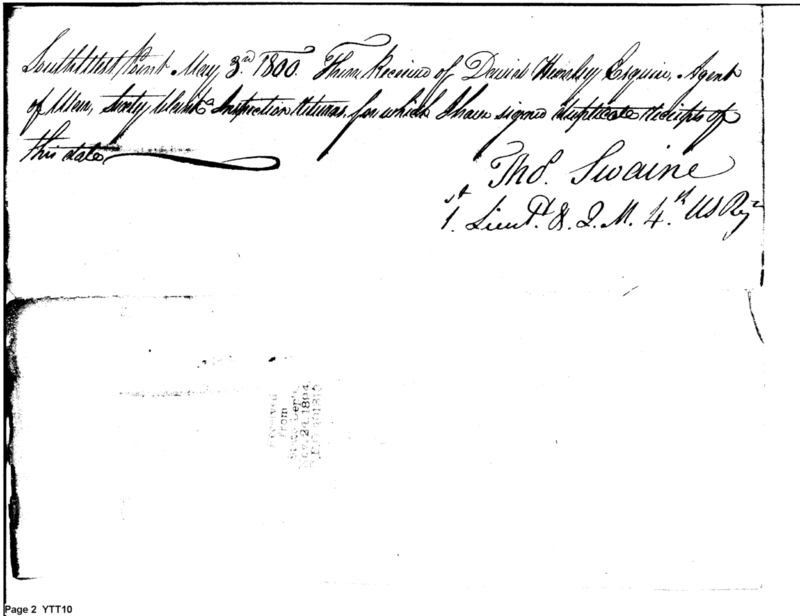 SouthWest Point May 3.d 1800. I have Received of David Henley Esquire, Agent
of War, Sixty blank Inspection Returns, for which I have signed duplicate receipts of
this date
Thos. Swaine
1.st Lieut. & Q. M. 4.th US Reg.
Received
From
State Dep't
24, 1894
Page 2 YTT10